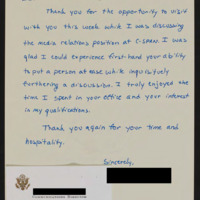 Thank you for the opportunity to visit
with you this week while I was discussing
the media relations position at C-SPAN. I was
glad I could experience first-hand your ability
to put a person at ease while inquisitively
furthering a discussion. I truly enjoyed the
time I spent in your office and your interest
in my qualifications.
Thank you again for your time and
hospitality.
Sincerely,